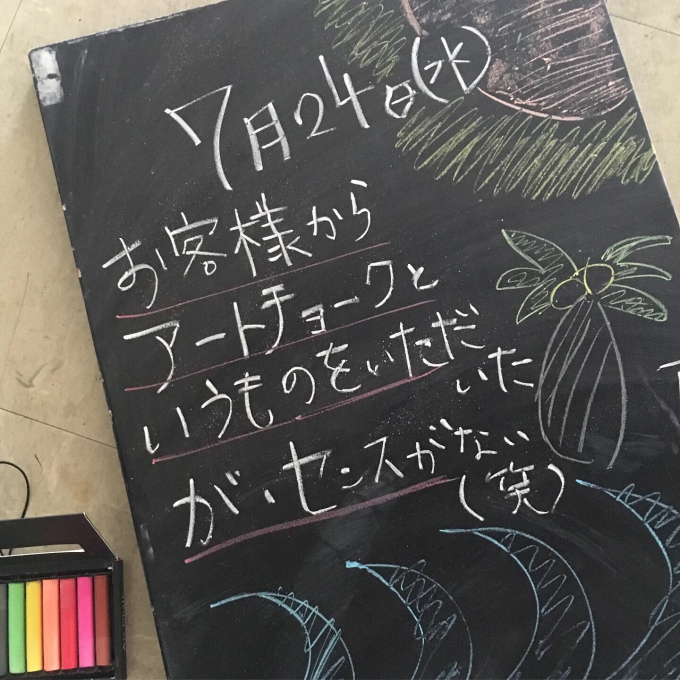 7月24日(水)
お客様から
アートチョークと
いうものをいただ
いた
が、センスがない
(笑)